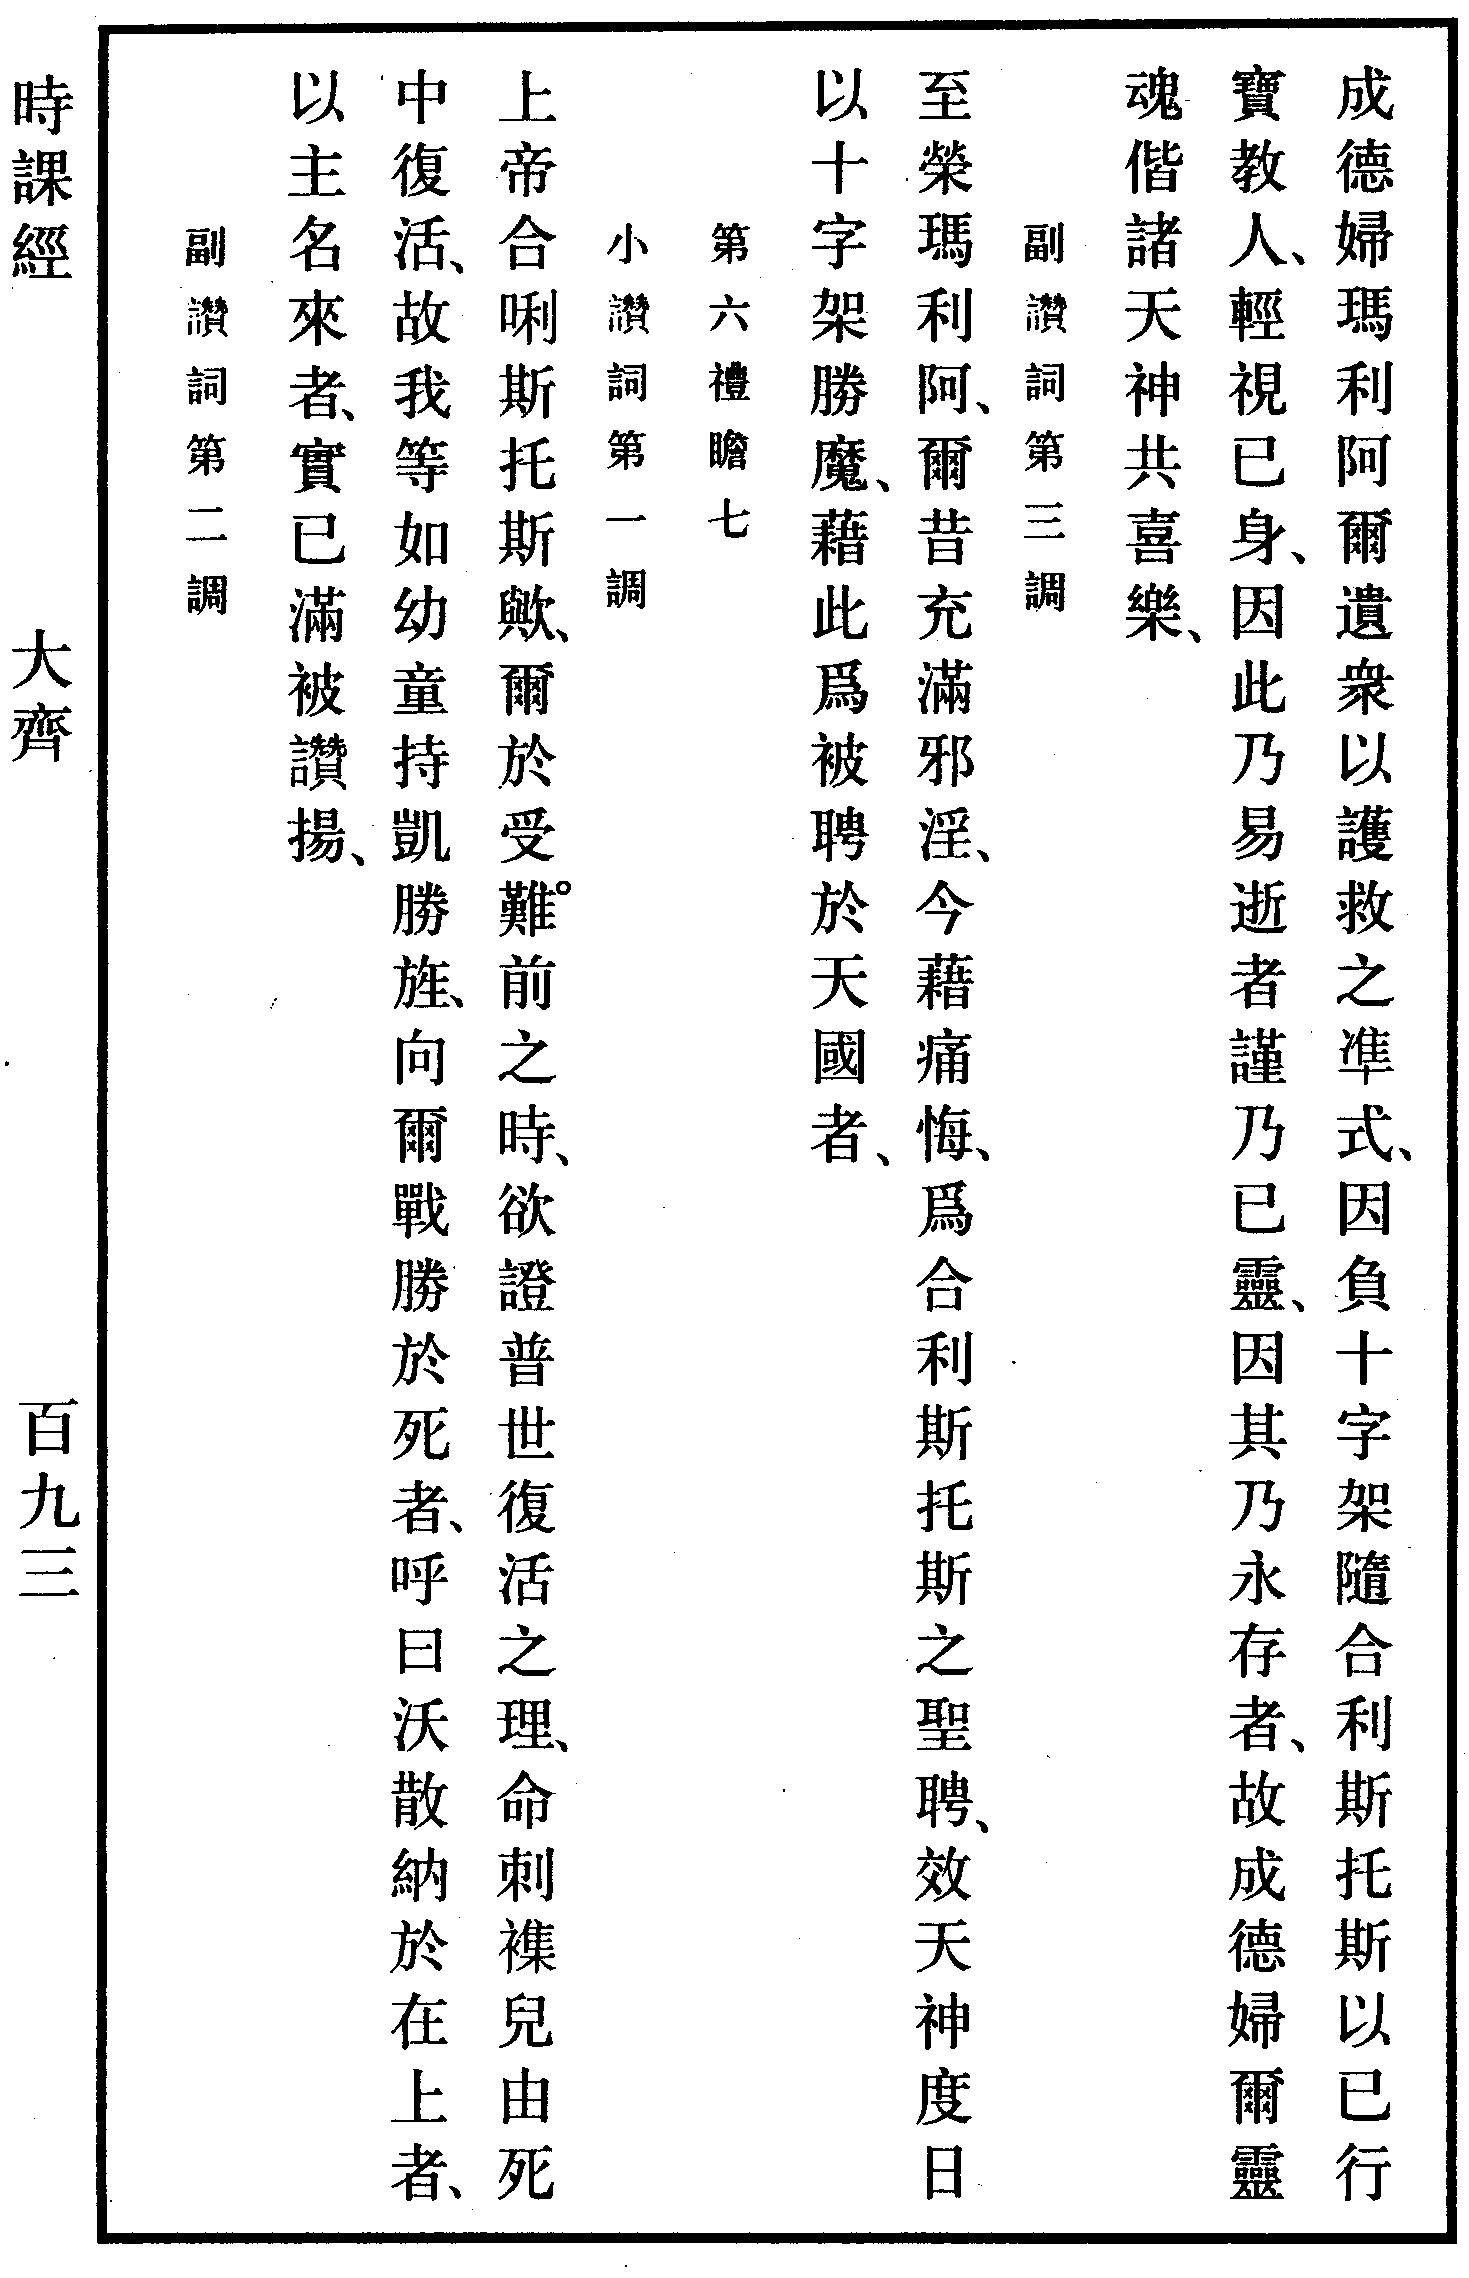 成德婦瑪利阿爾遺衆以護救之凖式、因負十字架隨合利斯托斯以已行
寶教人、輕視已身、因此乃易逝者謹乃已靈、因其乃永存者、故成德婦爾靈
魂偕諸天神共喜樂、
副讚詞第三調
至榮瑪利阿、爾昔充滿邪淫、今藉痛悔、爲合利斯托斯之聖聘、效天神度日
以十字架勝魔、藉此爲被聘於天國者、
第六禮瞻七
小讚詞第一調
上帝合唎斯托斯歟、爾於受難。前之時、欲證普世復活之理、命刺襍兒由死
中復活、故我等如幼童持凱勝旌、向爾戰勝於死者、呼曰沃散納於在上者、
以主名來者、實已滿被讚揚、
副讚詞第二調
時課經 大齊 百九三